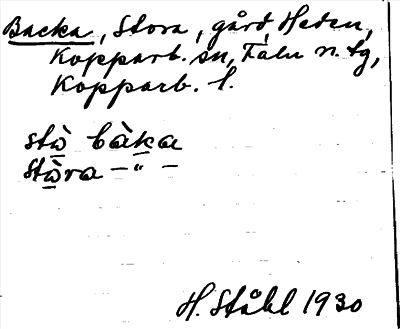 Backa, Stora, gård, Heden,
Kopparb. sn, Falu n. tg,
Kopparb. l.
stà bàka
stàra –"–
H. Ståhl 1930